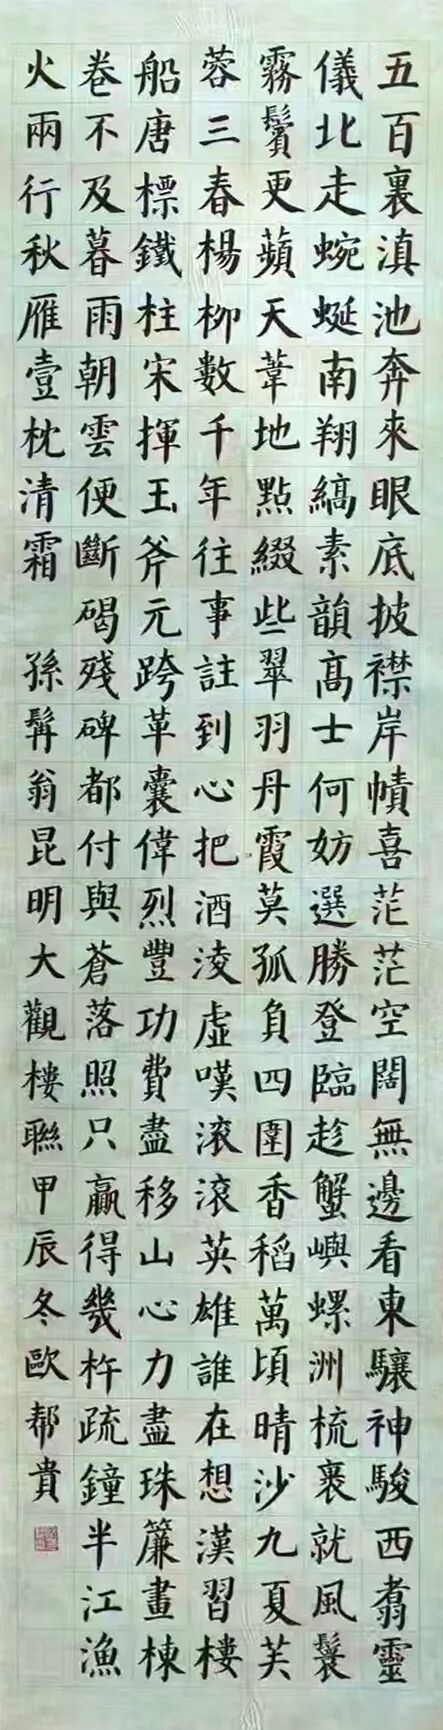 五百裏滇池奔來眼底披襟岸幘喜茫茫空闊無邊看東驤神駿西翥靈
儀北走蜿蜒南翔縞素韻髙士何妨選勝登臨趁蟹嶼螺洲梳裹就風鬟
霧鬢更蘋天葦地點綴些翠羽丹霞莫孤負四圍香稻萬頃晴沙九夏芙
蓉三春楊柳數千年往事註到心把酒淩虛嘆滾滾英雄誰在想漢習樓
船唐標鐵柱宋揮玉斧元跨革囊偉烈豐功費盡移山心力盡珠簾畫棟
卷不及暮雨朝雲便斷碣殘碑都付與蒼落照只贏得幾杵疏鐘半江漁
火兩行秋雁壹枕清霜 孫髯翁昆明大觀樓聯甲辰冬歐帮貴